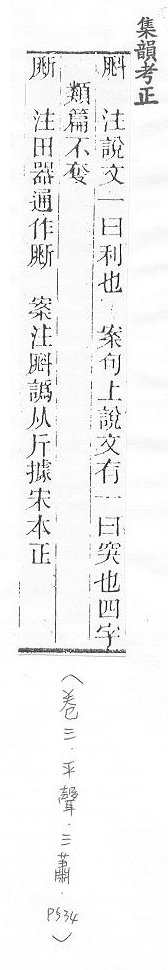 集韻考正
注說文一曰利也 案句上說文有一曰突也四字
類篇不奪
注田器通作 案注譌从斤據宋本正
(卷三.平聲.三蕭.P534)